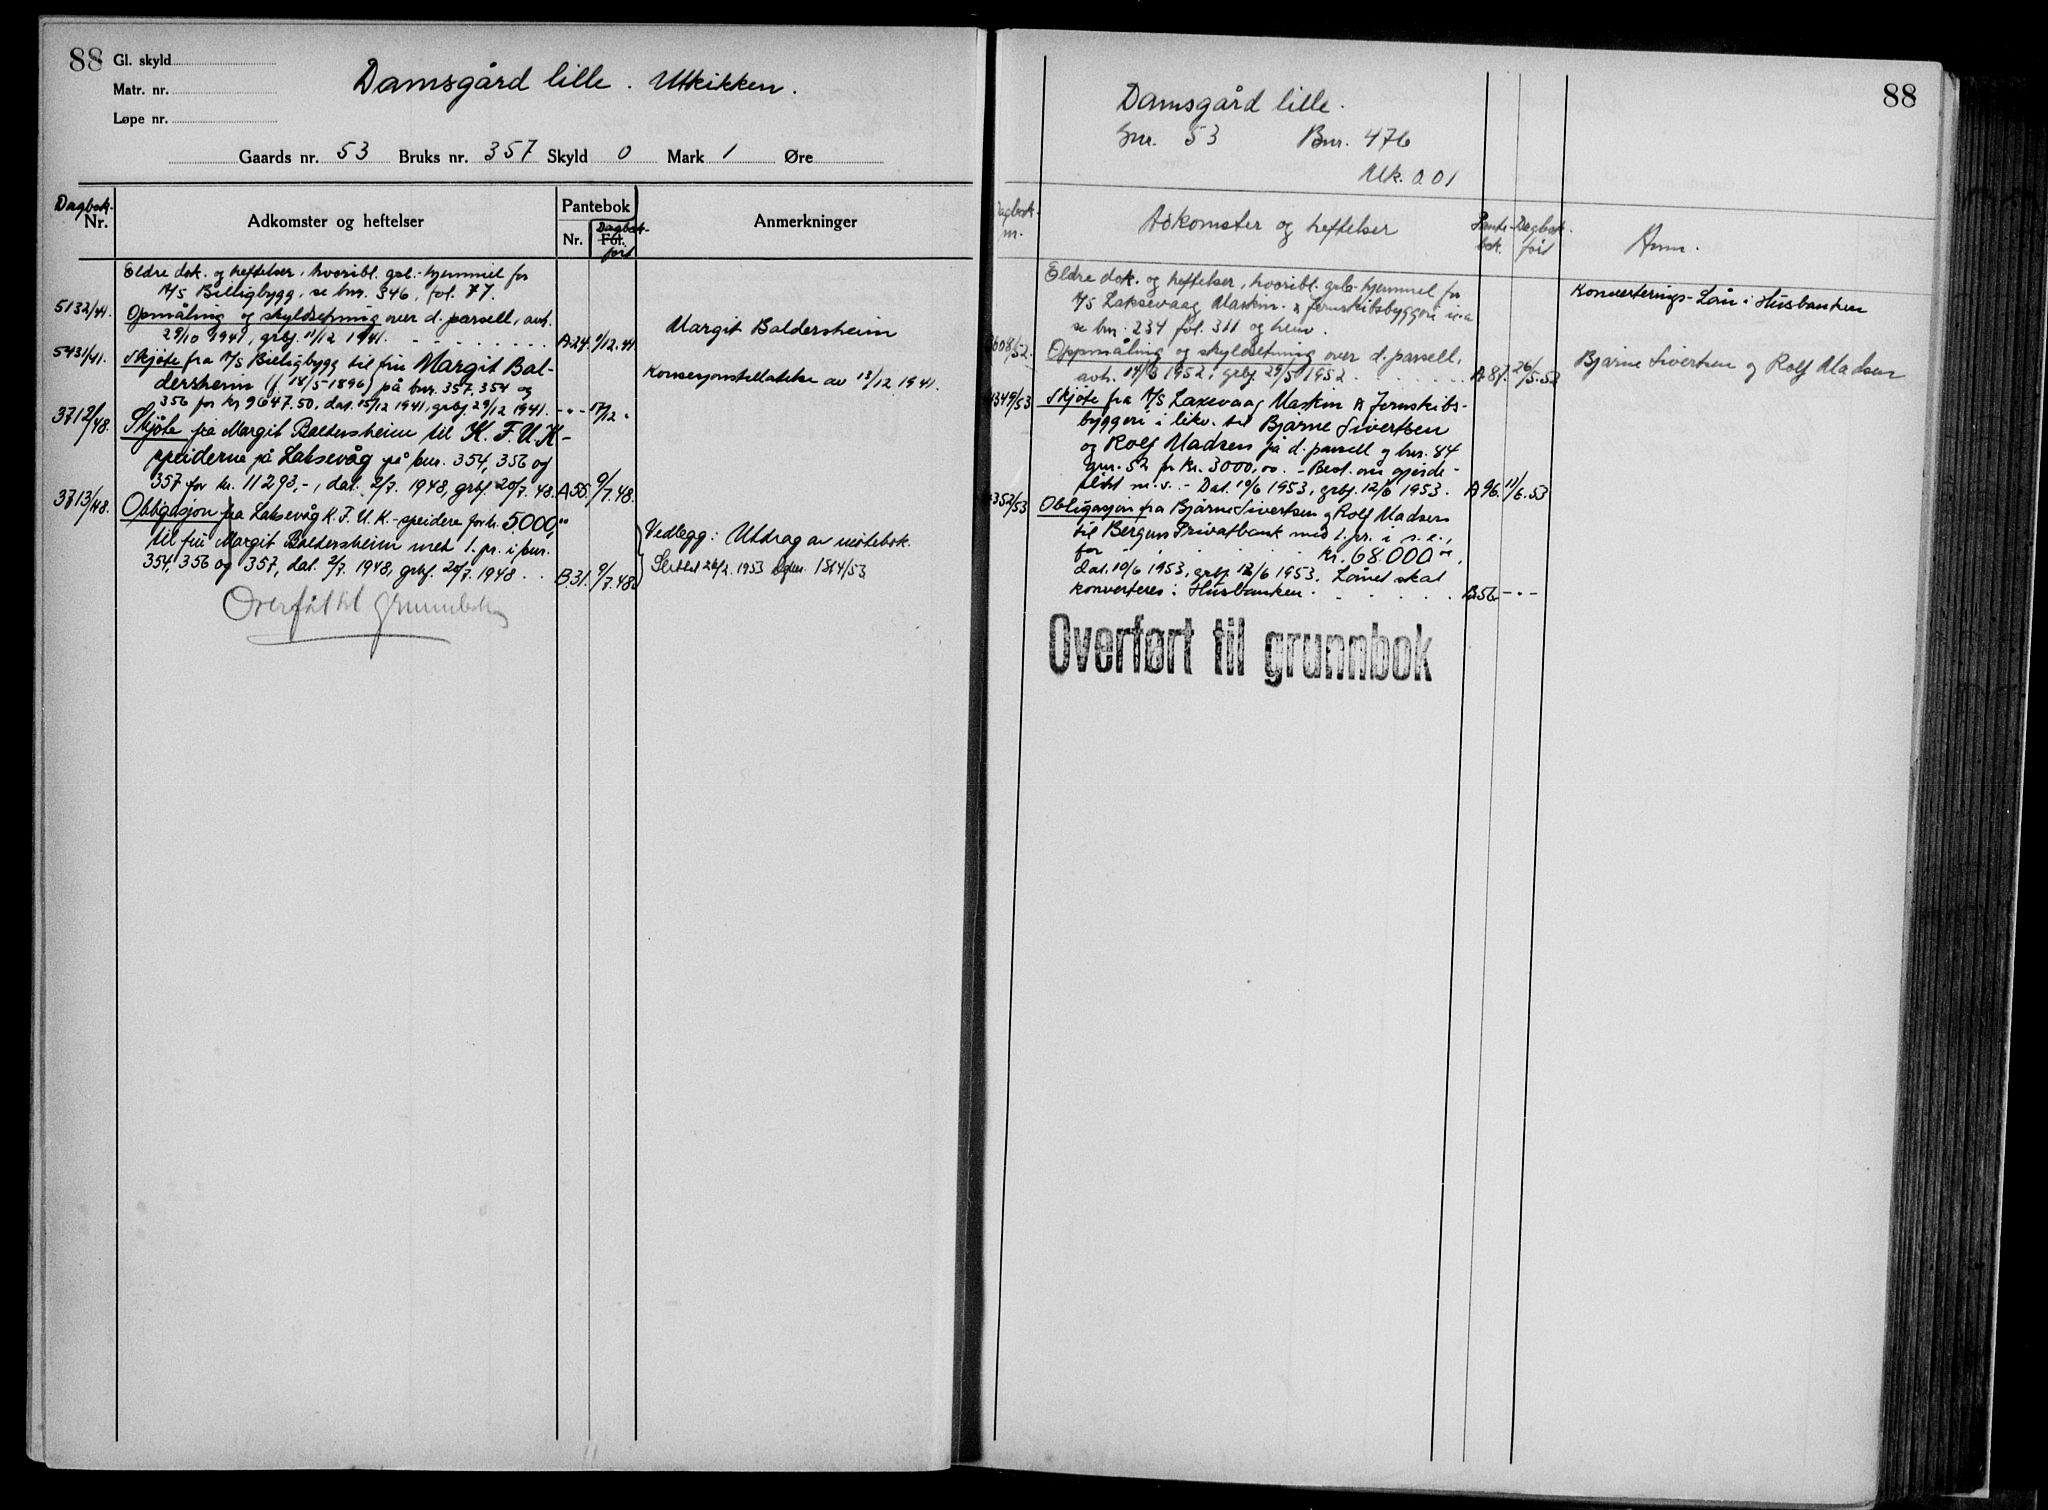 88
Gl. skyld
Matr. nr.
Løpe nr.
Damsgård lille. Utkikken.
Gaards nr. 53 Bruks nr. 357 Skyld 0 Mark 1 Øre
Dagbok.
Nr.
Adkomster og heftelser
Pantebok
Nr.
Fol.
Dagbok-
ført
Anmerkninger
Eldre dok. og heftelser, hvoribl. grb.-hjemmel for
A/S Billigbygg, se bnr. 346, fol. 77.
5132/41. Opmåling og skyldsetning over d. parsell, avh.
29/10 1941, grbf. 11/12 1941. A.24. 9/12.41
Margit Baldersheim
5431/41. Skjøte fra A/S Billigbygg til fru Margit Bal-
dersheim (f. 14/5-1896) på bnr. 357, 354 og
356 for kr 9647.50, dat. 15/12 1941, grbf. 29/12 1941. -"- 17/12 "
Konsesjonstillatelse av 13/12 1941.
3712/48. Skjøte fra Margit Baldersheim til K.F.U.K-
speiderne på Laksevåg på bnr. 354, 356 og
357 for kr. 11293,-, dat. 2/7. 1948, grbf. 20/7.48. A.55. 9/7.48.
3713/48. Obligasjon fra Laksevåg K.F.U.K.-speidere for kr. 5000,"
til fru Margit Baldersheim med 1. pr. i bnr.
354, 356 og 357, dat. 2/7. 1948, grbf. 20/7. 1948. B.31. 9/7.48.
Vedlegg: Utdrag av møtebok.
Slettet 26/2. 1953 Dgbnr. 1814/53
Overført til grunnbok
88
Damsgård lille.
Gnr. 53 Bnr. 476
Mk. 0.01
Dagbok-
nr.
Adkomster og heftelser
Pante-
bok.
Dagbok.
ført
Anm.
Eldre dok. og heftelser, hvoribl. grb-hjemmel for
A/S Laksevaag Maskin- & Jernskibsbyggeri
se bnr. 234 fol. 311 og henv.
Konverterings-Lån i Husbanken
608/52. Oppmåling og skyldsetning over d. parsell,
avh. 14/3 1952, grbf. 29/5 1952. A.87. 26/5.52
Bjarne Sivertsen og Rolf Madsen
349/53 Skjøte fra A/S Laxevaag Maskin & Jernskibs-
byggeri i likv. til Bjarne Sivertsen
og Rolf Madsen på d. parsell og bnr. 84
gnr. 52 for kr. 3000,00. - Best. om gjerde-
plikt m.v. - Dat. 10/6 1953, grbf. 12/6 1953. A.96. 11/6.53
352/53 Obligasjon fra Bjarne Sivertsen og Rolf Madsen
til Bergens Privatbank med 1. pr. i s.e.,
for kr. 68.000
dat. 10/6 1953, grbf. 12/6 1953. Lånet skal
konverteres i Husbanken. B.56 -"-
Overført til grunnbok